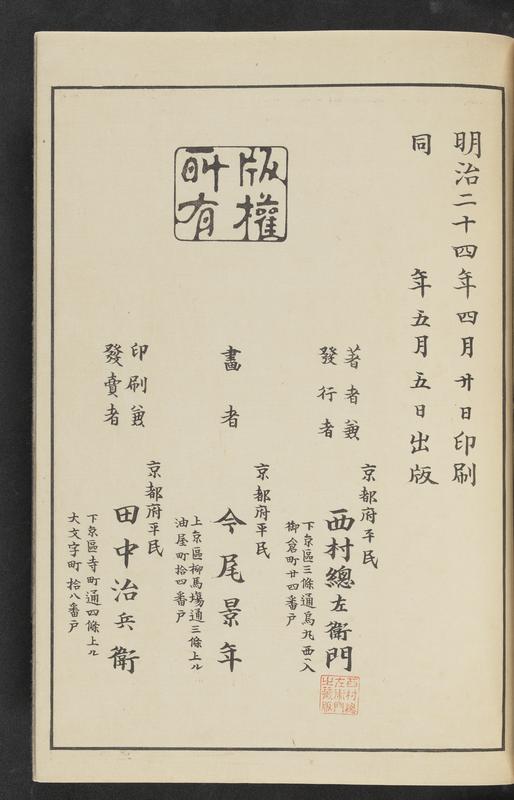 明治二十四年四月廿日印刷
同年五月五日出版
著者兼
發行者
京都府平民
西村總左衛門
下京區三條通烏丸西入
御倉町廿四番戸
畫者
京都府平民
今尾景年
上京區柳馬塲通三條上ル
油屋町拾四番戸
印刷兼
發賣者
京都府平民
田中治兵衛
下京區寺町通四條上ル
大文字町拾八番戸
版權
所有
西村總
左衛門
出版